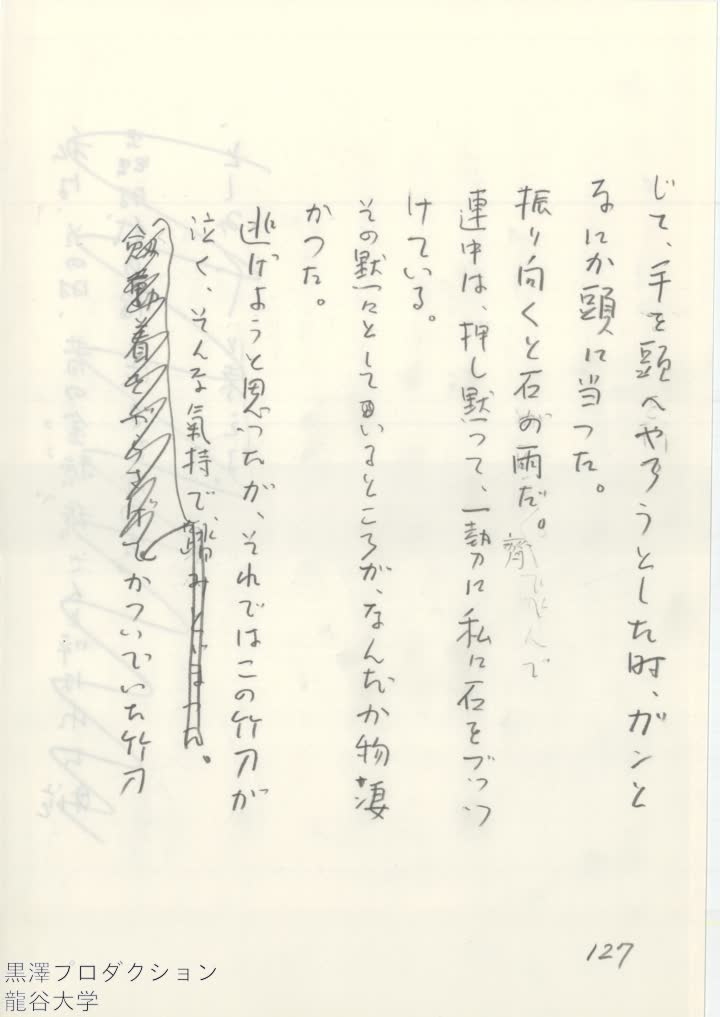 じて、手を頭へやろうとした時、ガンと
なにか頭に当った。
振り向くと石の雨だ。
連中は、押し黙って、一勢に私に石をぶっつ
けている。
その黙々としているところが、なんだか物凄
かった。
逃げようと思ったが、それではこの竹刀が
泣く、そんな氣持で、踏みとどまった。
かついでいた竹刀
127
黒澤プロダクション
龍谷大学